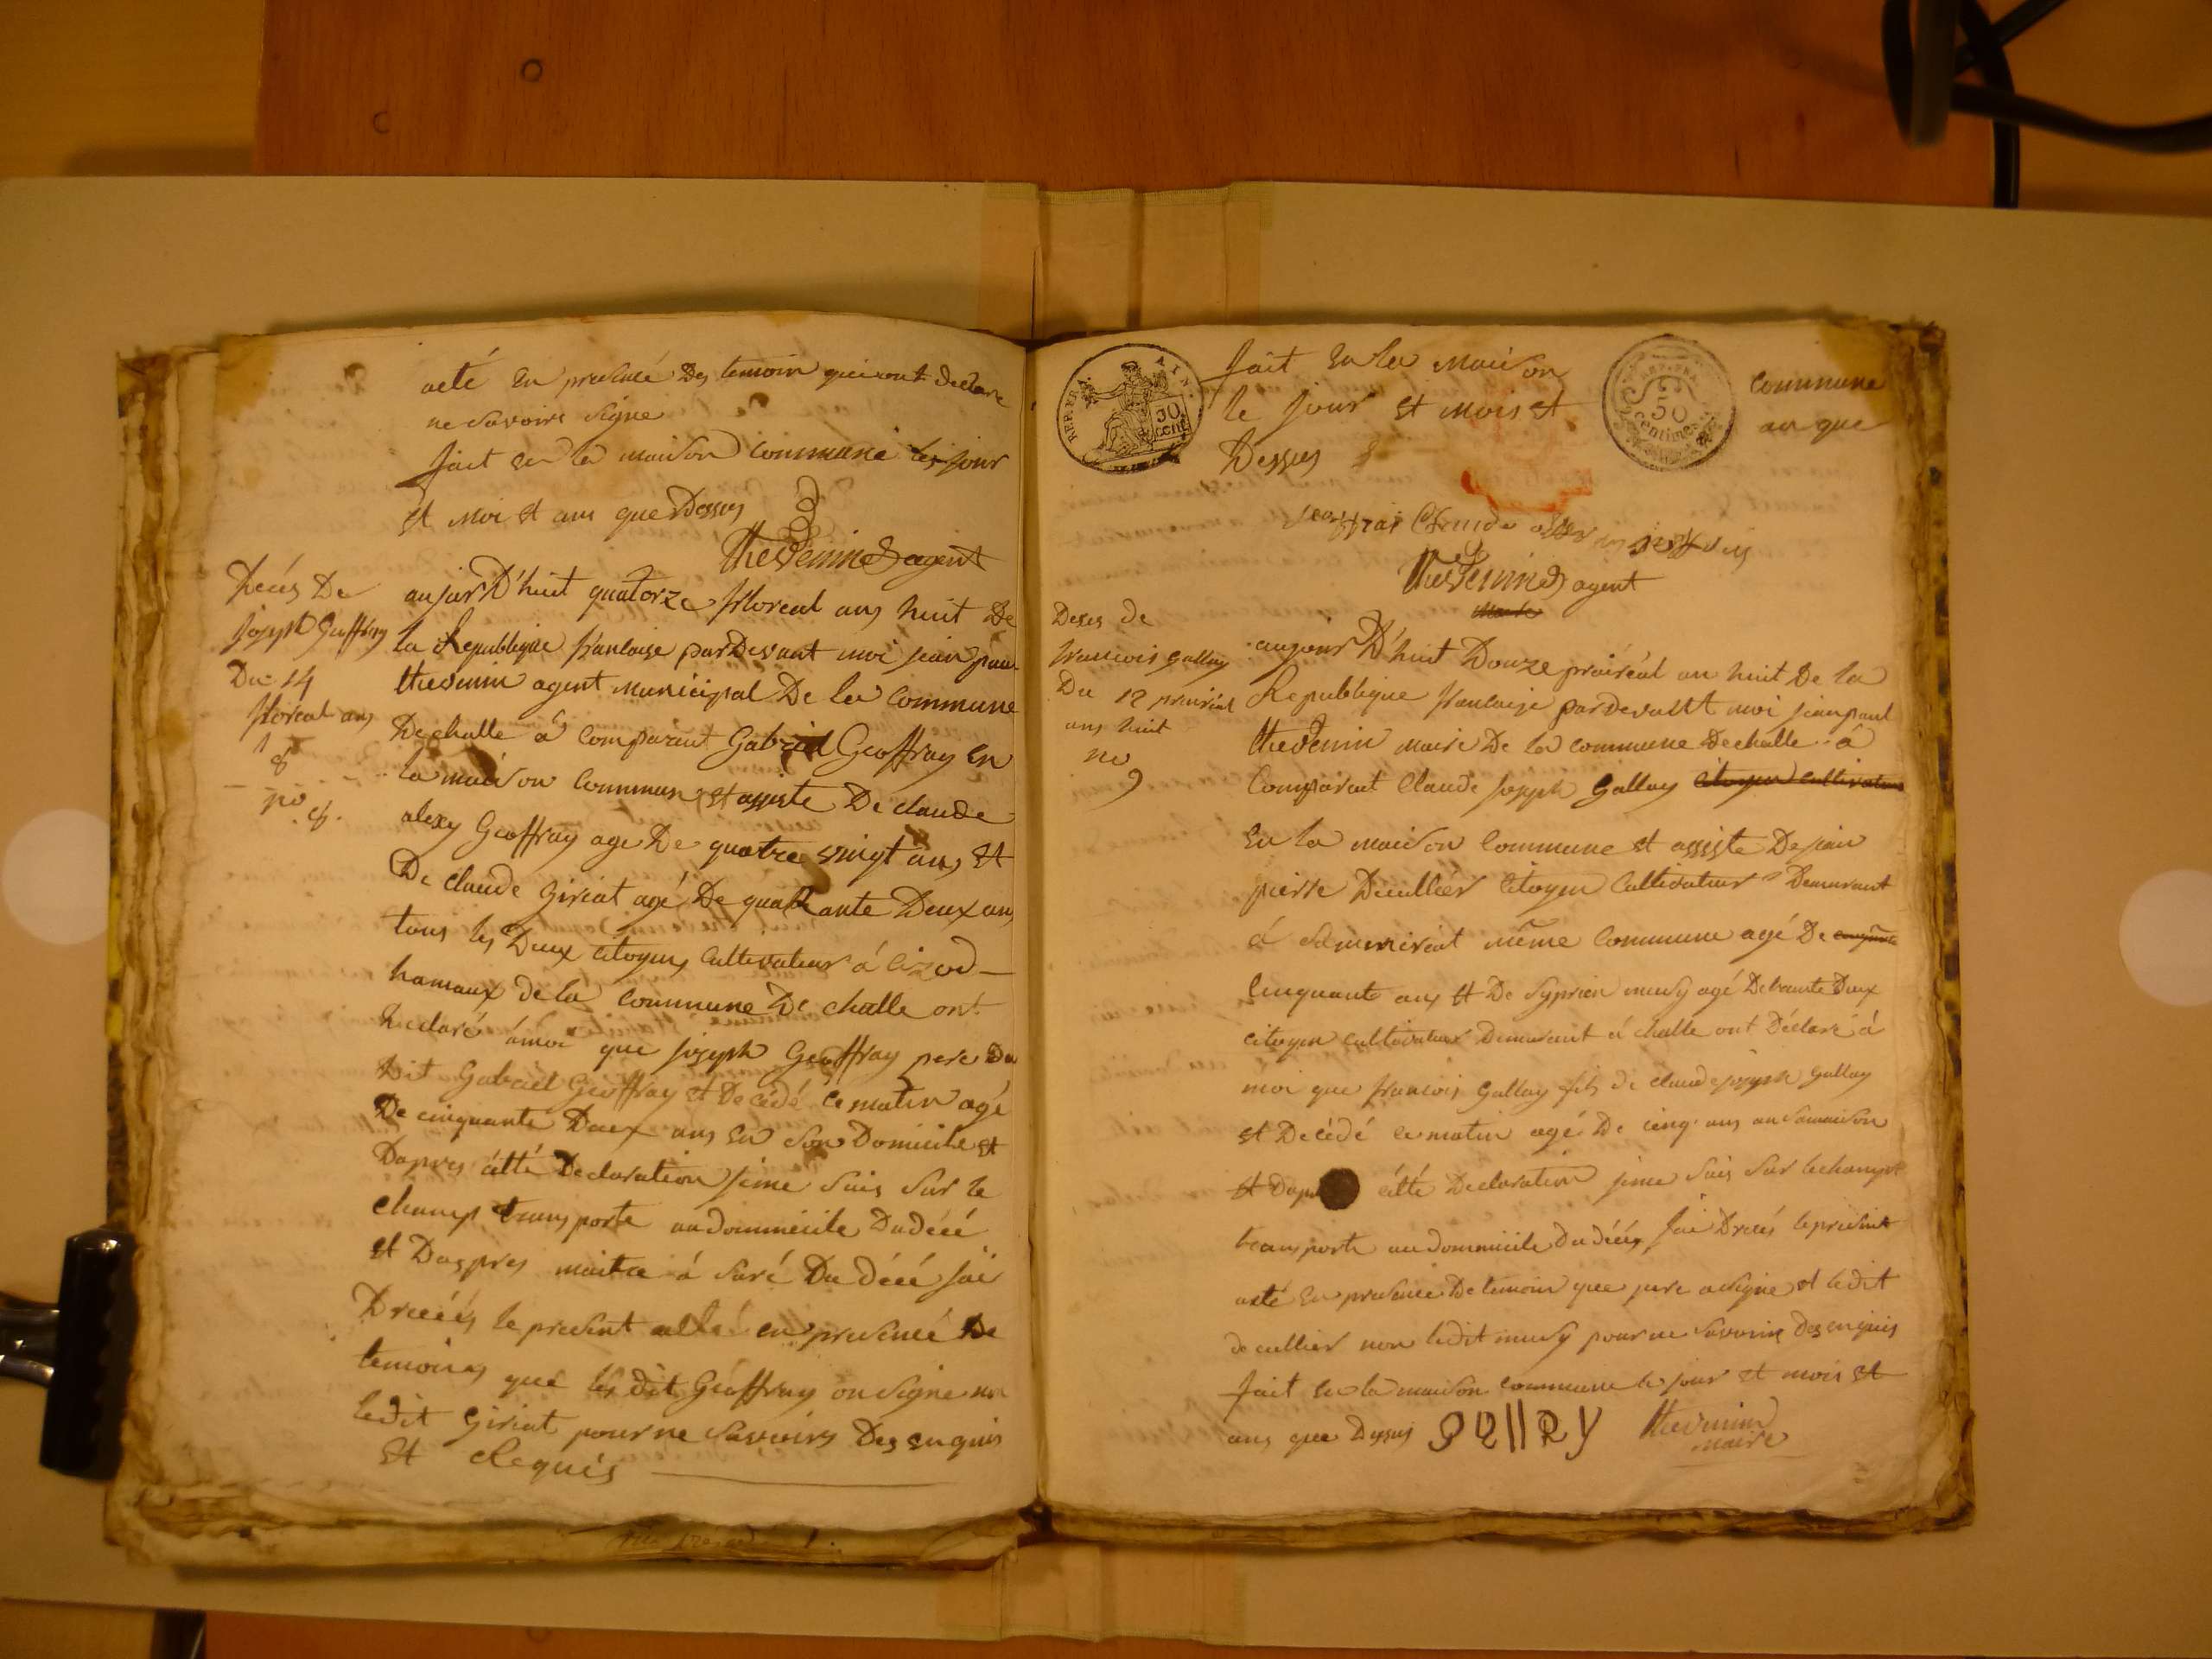 acté en presencé Des temoin quiront declare
ne Savoire Signe
fait en la maison communé les jour
et moi et ans que Dessus
thevenin agent
Decés De
joseph Geoffray
Du 14
floreal ans
8
no
8.
aujour D'huit quatorze floreal ans huit De
la Republique francaise parDevant moi jean pau
thevenin agent municipal De la commune
De challe a comparut Gabriel Geoffray en
la maison commun et assiste De claude
alexy Geoffray age De quatre vingt ans et
De claude Giriat agé De quarante Deux ans
tous les Deux citoyens cultivateur á cizod
hamaux de la commune De challe ont
Declaré ámoi que joseph Geoffray pere du
Dit Gabriel Geoffray et Decédé cematin agé
De cinquante Deux ans en son Domicile et
Dapres cétté Declaration jeme suis sur le
champ transporte audommicile Dudécé
et Daspres maitre á suré Du décé jai
Dreces le present acte en presencé De
temoins que les dit Geoffray on signe non
ledit Giriat pour ne savoirs Des enquis
et Requis
REP. FRA.
AIN.
50
cent
50
centimes
fait en la maison commune
le jour et mois et an que
Dessus
jeoffrai Claude
thevenin agent
Maire
Deses de
francois gallay
Du 12 prairial
ans huit
no
9
aujour D'huit Douze prairéal an huit De la
Republique francaise pardevant moi jean paul
thevenin maire De la commune De challe á
comparut Claude joseph Gallay citoyen cultivateur
en la maison commune et assiste De jean
pierre Decullier citoyen cultivateur Demeurant
á même commune agé De
cinquante ans et De syprien musy agé De trante Deux
citoyen cultivateur Demeurant á challe ont Déclaré á
moi que francois Gallay fils de claude joseph Gallay
et Decédé ce matin agé De cinq ans an samaison
et cétté Declaration jeme suis sur lechampt
transporte au dommicile du décés jai Dreces le présent
acté en presence De temoin que pere a signe et ledit
decullier non ledit musy pour ne savoire Des enquis
fait en la maison commune le jour et mois et
ans que Dessus gallay thevenin
maire